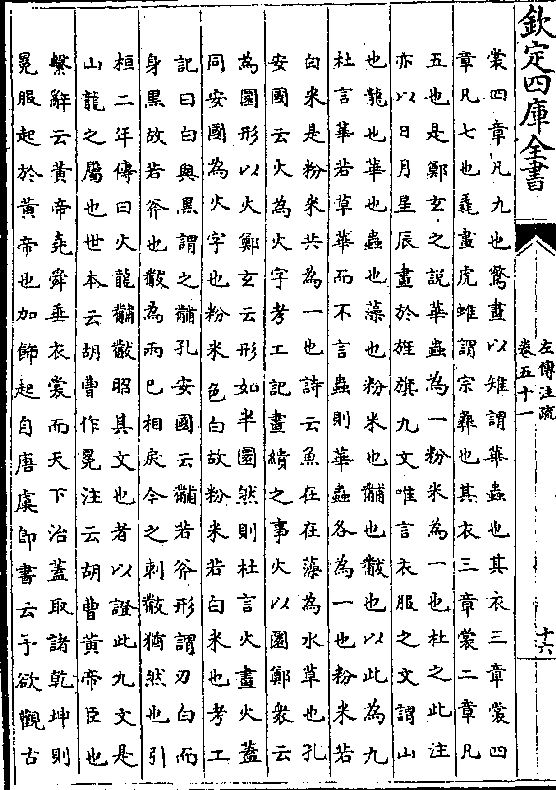 欽定四庫全書
左傳注疏
卷五十一
十六
裳四章凡九也鷩畫以雉謂華蟲也其衣三章裳四
章凡七也毳畫虎蜼謂宗彛也其衣三章裳二章凡
五也是鄭玄之說華蟲為一粉米為一也杜之此注
亦以日月星辰畫於旌旗九文唯言衣服之文謂山
也龍也華也蟲也藻也粉米也黼也黻也以此為九
杜言華若草華而不言蟲則華蟲各為一也粉米若
白米是粉米共為一也詩云魚在在藻為水草也孔
安國云火為火字考工記畫繢之事火以圜鄭衆云
為圜形以火鄭玄云形如半圜然則杜言火畫火蓋
同安國為火字也粉米色白故粉米若白米也考工
記曰白與黑謂之黼孔安國云黼若斧形謂刃白而
身黑故若斧也黻為兩已相戾今之刺黻猶然也引
桓二年傳曰火龍黼黻昭其文也者以證此九文是
山龍之屬也世本云胡曹作冕注云胡曹黃帝臣也
繫辭云黃帝堯舜垂衣裳而天下治蓋取諸乾坤則
冕服起於黃帝也加飾起自唐虞即書云予欲觀古